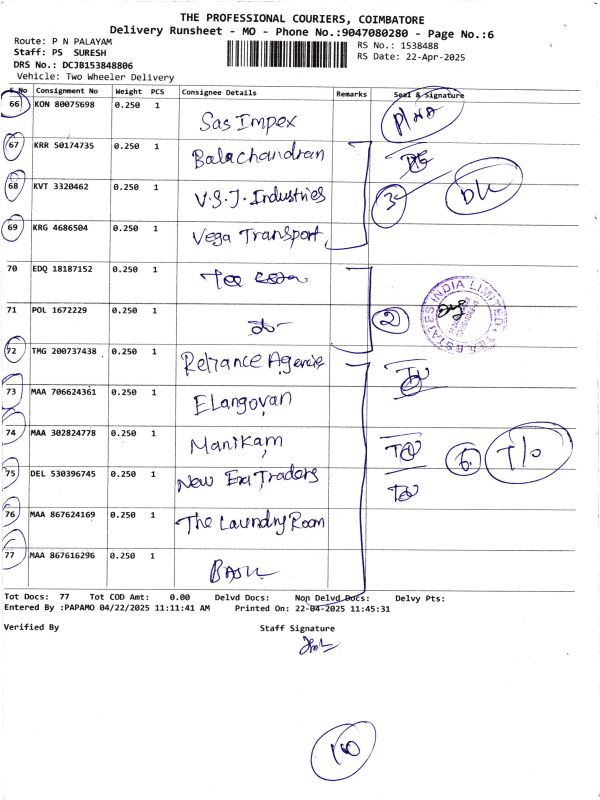 THE PROFESSIONAL COURIERS, COIMBATORE
Delivery Runsheet - MO - Phone No.:9047080280 - Page No.:6
Route: P N PALAYAM
RS No.: 1538488
Staff: PS SURESH
RS Date: 22-Apr-2025
DRS No.: DCJB153848806
Vehicle: Two Wheeler Delivery
S.No Consignment No Weight PCS Consignee Details Remarks Seal & Signature
66 KON 80075698 0.250 1 Sas Impex
67 KRR 50174735 0.250 1 Balachandran
68 KVT 3320462 0.250 1 V.S.J. Industries 3 DL
69 KRG 4686504 0.250 1 Vega Transport
70 EDQ 18187152 0.250 1 Tea
71 POL 1672229 0.250 1 2
TEA ESTATES INDIA LIMITED
72 TMG 200737438 0.250 1 Reliance Agencie
73 MAA 706624361 0.250 1 Elangovan
74 MAA 302824778 0.250 1 Manikam 6 T/O
75 DEL 530396745 0.250 1 New Era Traders
76 MAA 867624169 0.250 1 The Laundry Room
77 MAA 867616296 0.250 1
Tot Docs: 77 Tot COD Amt: 0.00 Delvd Docs: Non Delvd Docs: Delvy Pts:
Entered By :PAPAMO 04/22/2025 11:11:41 AM Printed On: 22-04-2025 11:45:31
Verified By Staff Signature